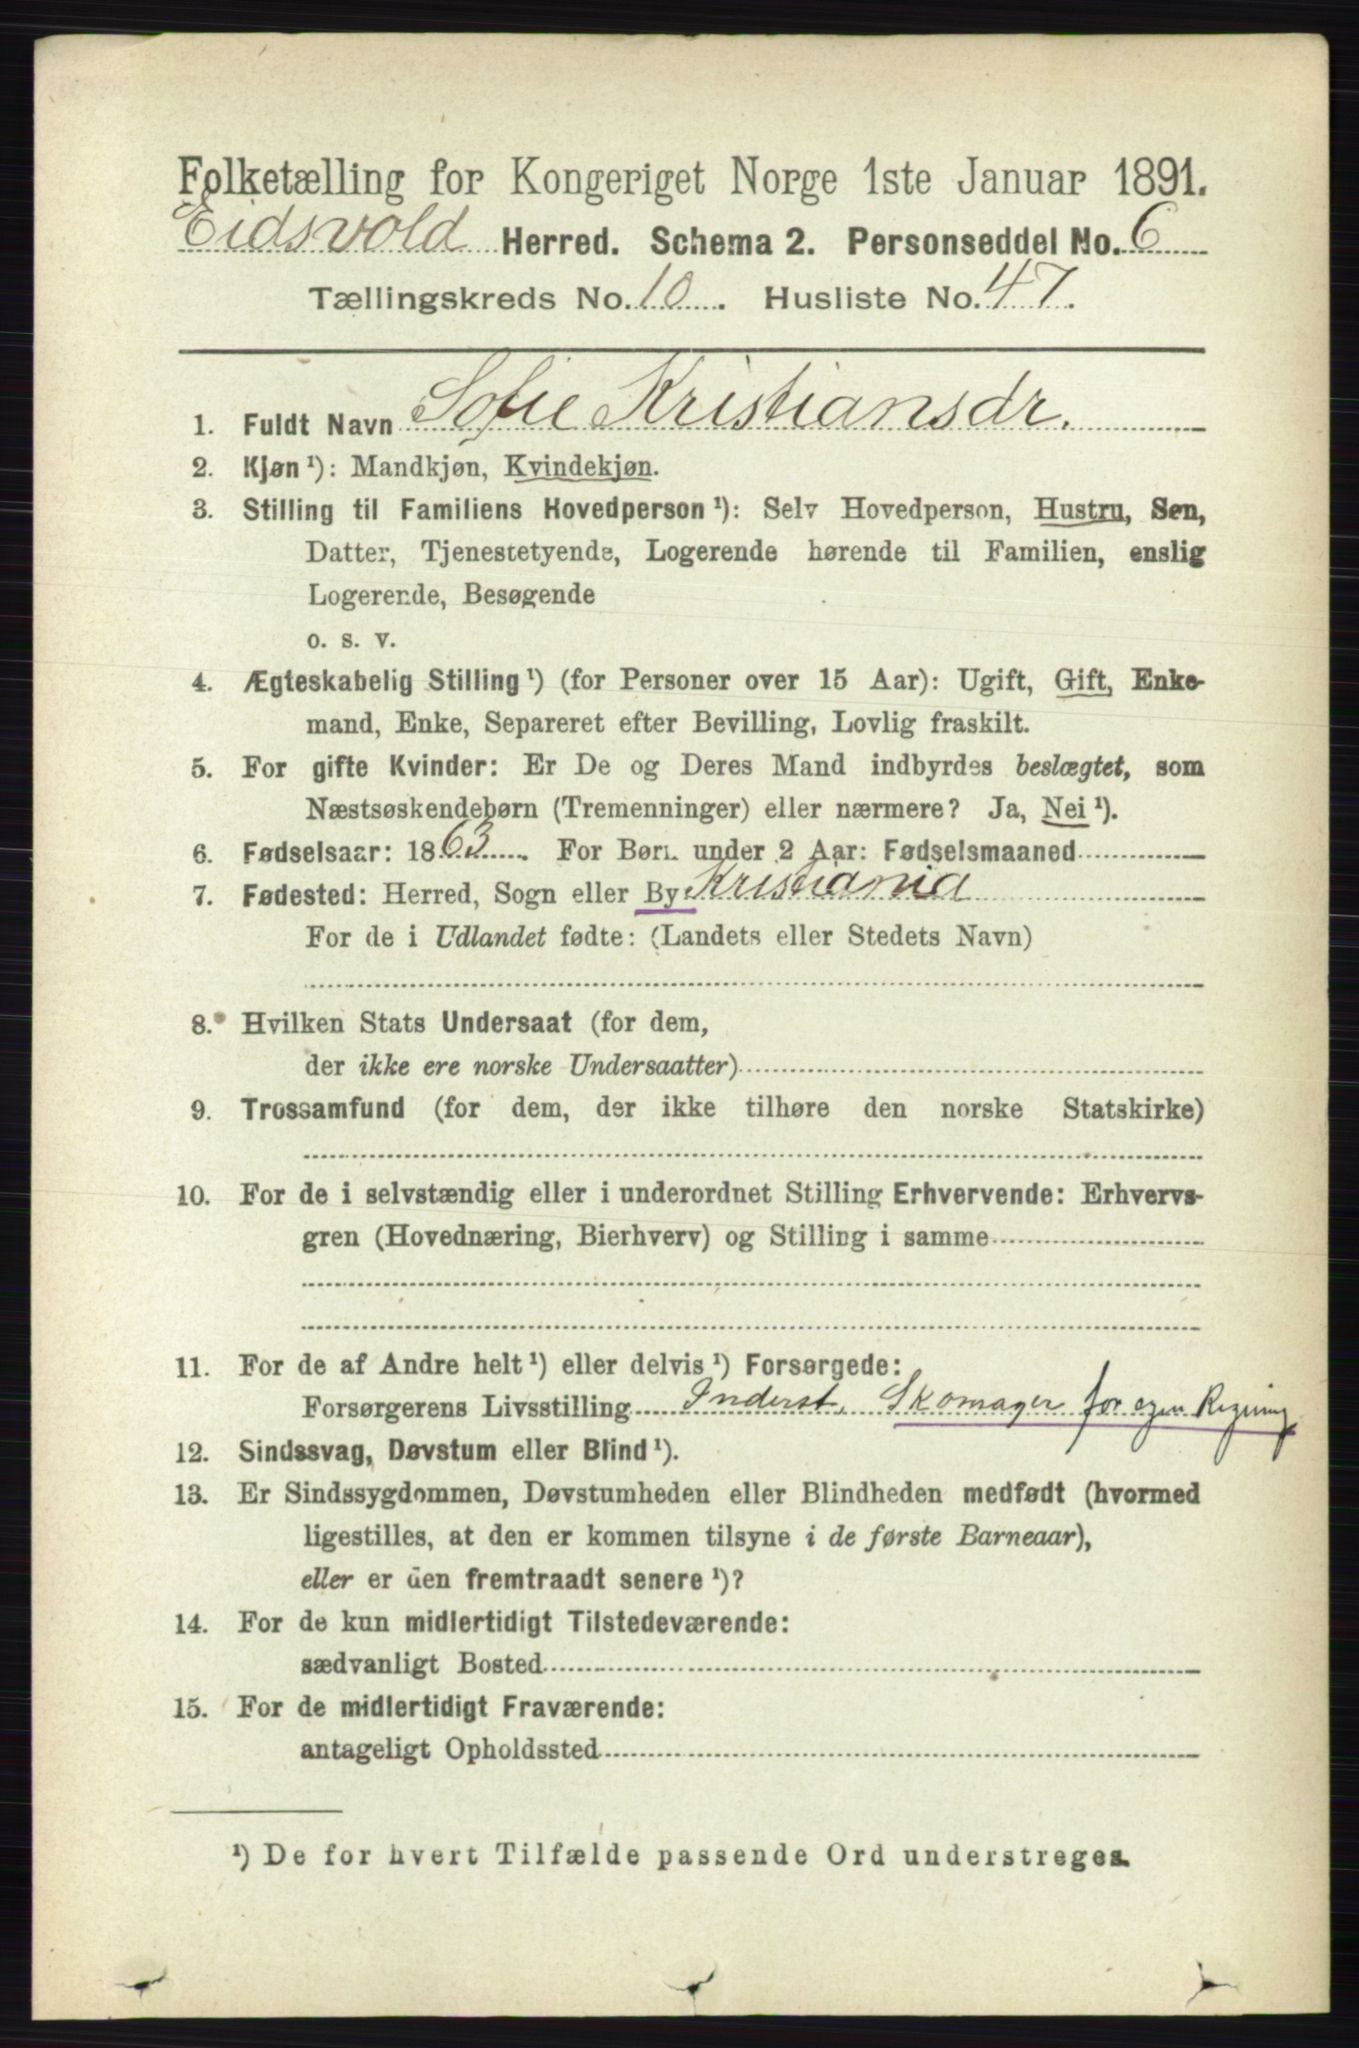 Folketælling for Kongeriget Norge 1ste Januar 1891.
Eidsvold Herred. Schema 2. Personseddel No. 6
Tællingskreds No. 10. Husliste No. 47.
1. Fuldt Navn Sofie Kristiansdr.
2. Kjøn ¹): Mandkjøn, Kvindekjøn.
3. Stilling til Familiens Hovedperson ¹): Selv Hovedperson, Hustru, Søn,
Datter, Tjenestetyende, Logerende hørende til Familien, enslig
Logerende, Besøgende
o. s. v.
4. Ægteskabelig Stilling ¹) (for Personer over 15 Aar): Ugift, Gift, Enke-
mand, Enke, Separeret efter Bevilling, Lovlig fraskilt.
5. For gifte Kvinder: Er De og Deres Mand indbyrdes beslægtet, som
Næstsøskendebørn (Tremenninger) eller nærmere? Ja, Nei ¹).
6. Fødselsaar: 1863. For Børn under 2 Aar: Fødselsmaaned
7. Fødested: Herred, Sogn eller By Kristiania
For de i Udlandet fødte: (Landets eller Stedets Navn)
8. Hvilken Stats Undersaat (for dem,
der ikke ere norske Undersaatter)
9. Trossamfund (for dem, der ikke tilhøre den norske Statskirke)
10. For de i selvstændig eller i underordnet Stilling Erhvervende: Erhvervs-
gren (Hovednæring, Bierhverv) og Stilling i samme
11. For de af Andre helt ¹) eller delvis ¹) Forsørgede:
Forsørgerens Livsstilling Inderst, Skomager for egen Regning
12. Sindssvag, Døvstum eller Blind ¹).
13. Er Sindssygdommen, Døvstumheden eller Blindheden medfødt (hvormed
ligestilles, at den er kommen tilsyne i de første Barneaar),
eller er den fremtraadt senere ¹)?
14. For de kun midlertidigt Tilstedeværende:
sædvanligt Bosted
15. For de midlertidigt Fraværende:
antageligt Opholdssted
¹) De for hvert Tilfælde passende Ord understreges.